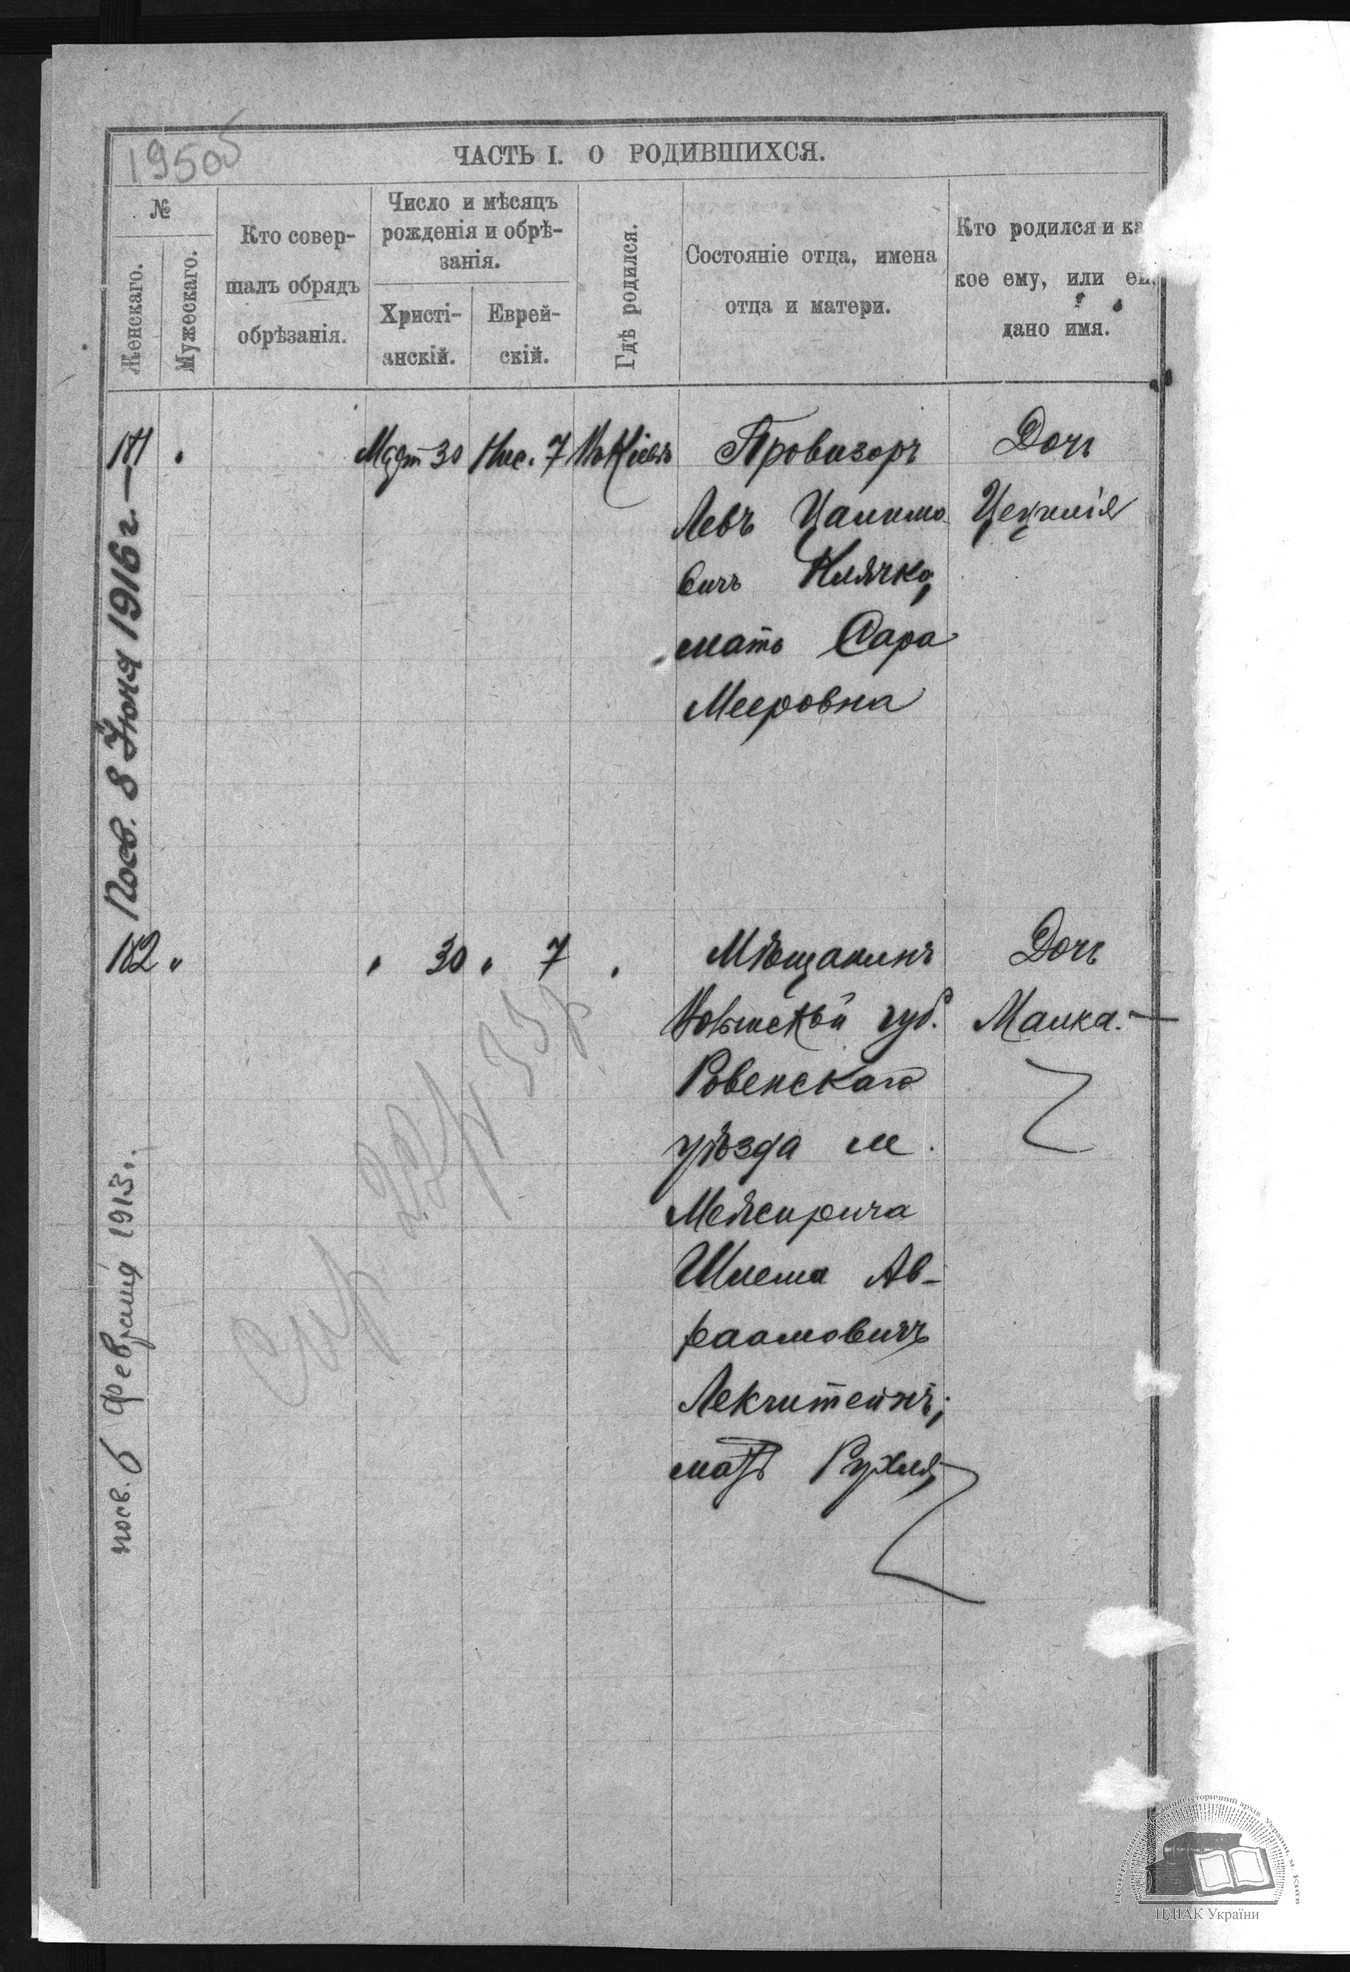 19505
ЧАСТЬ I. О РОДИВШИХСЯ.
№
Женскаго.
Мужескаго.
Кто совер-
шалъ обрядъ
обрѣзанія.
Число и мѣсяцъ
рожденія и обрѣ-
занія.
Христі-
анскій.
Еврей-
скій.
Гдѣ родился.
Состояніе отца, имена
отца и матери.
Кто родился и ка
кое ему, или ей,
дано имя.
Март 30 Нис. 7 Въ Кіевѣ
Провизоръ
Левъ Цалимо
вичъ Клячко,
мать Сара
Мееровна
Дочь
Цецилія
Посв. 8 Іюня 1916 г. —
182 " " 30 " 7 "
Мѣщанинъ
Волынской губ.
Ровенскаго
уѣзда м.
Межирича
Шлема Ав-
раамовичъ
мать Рухля
Дочь
Малка. —
посв. 6 февраля 1913 г.
ЦДІАК України